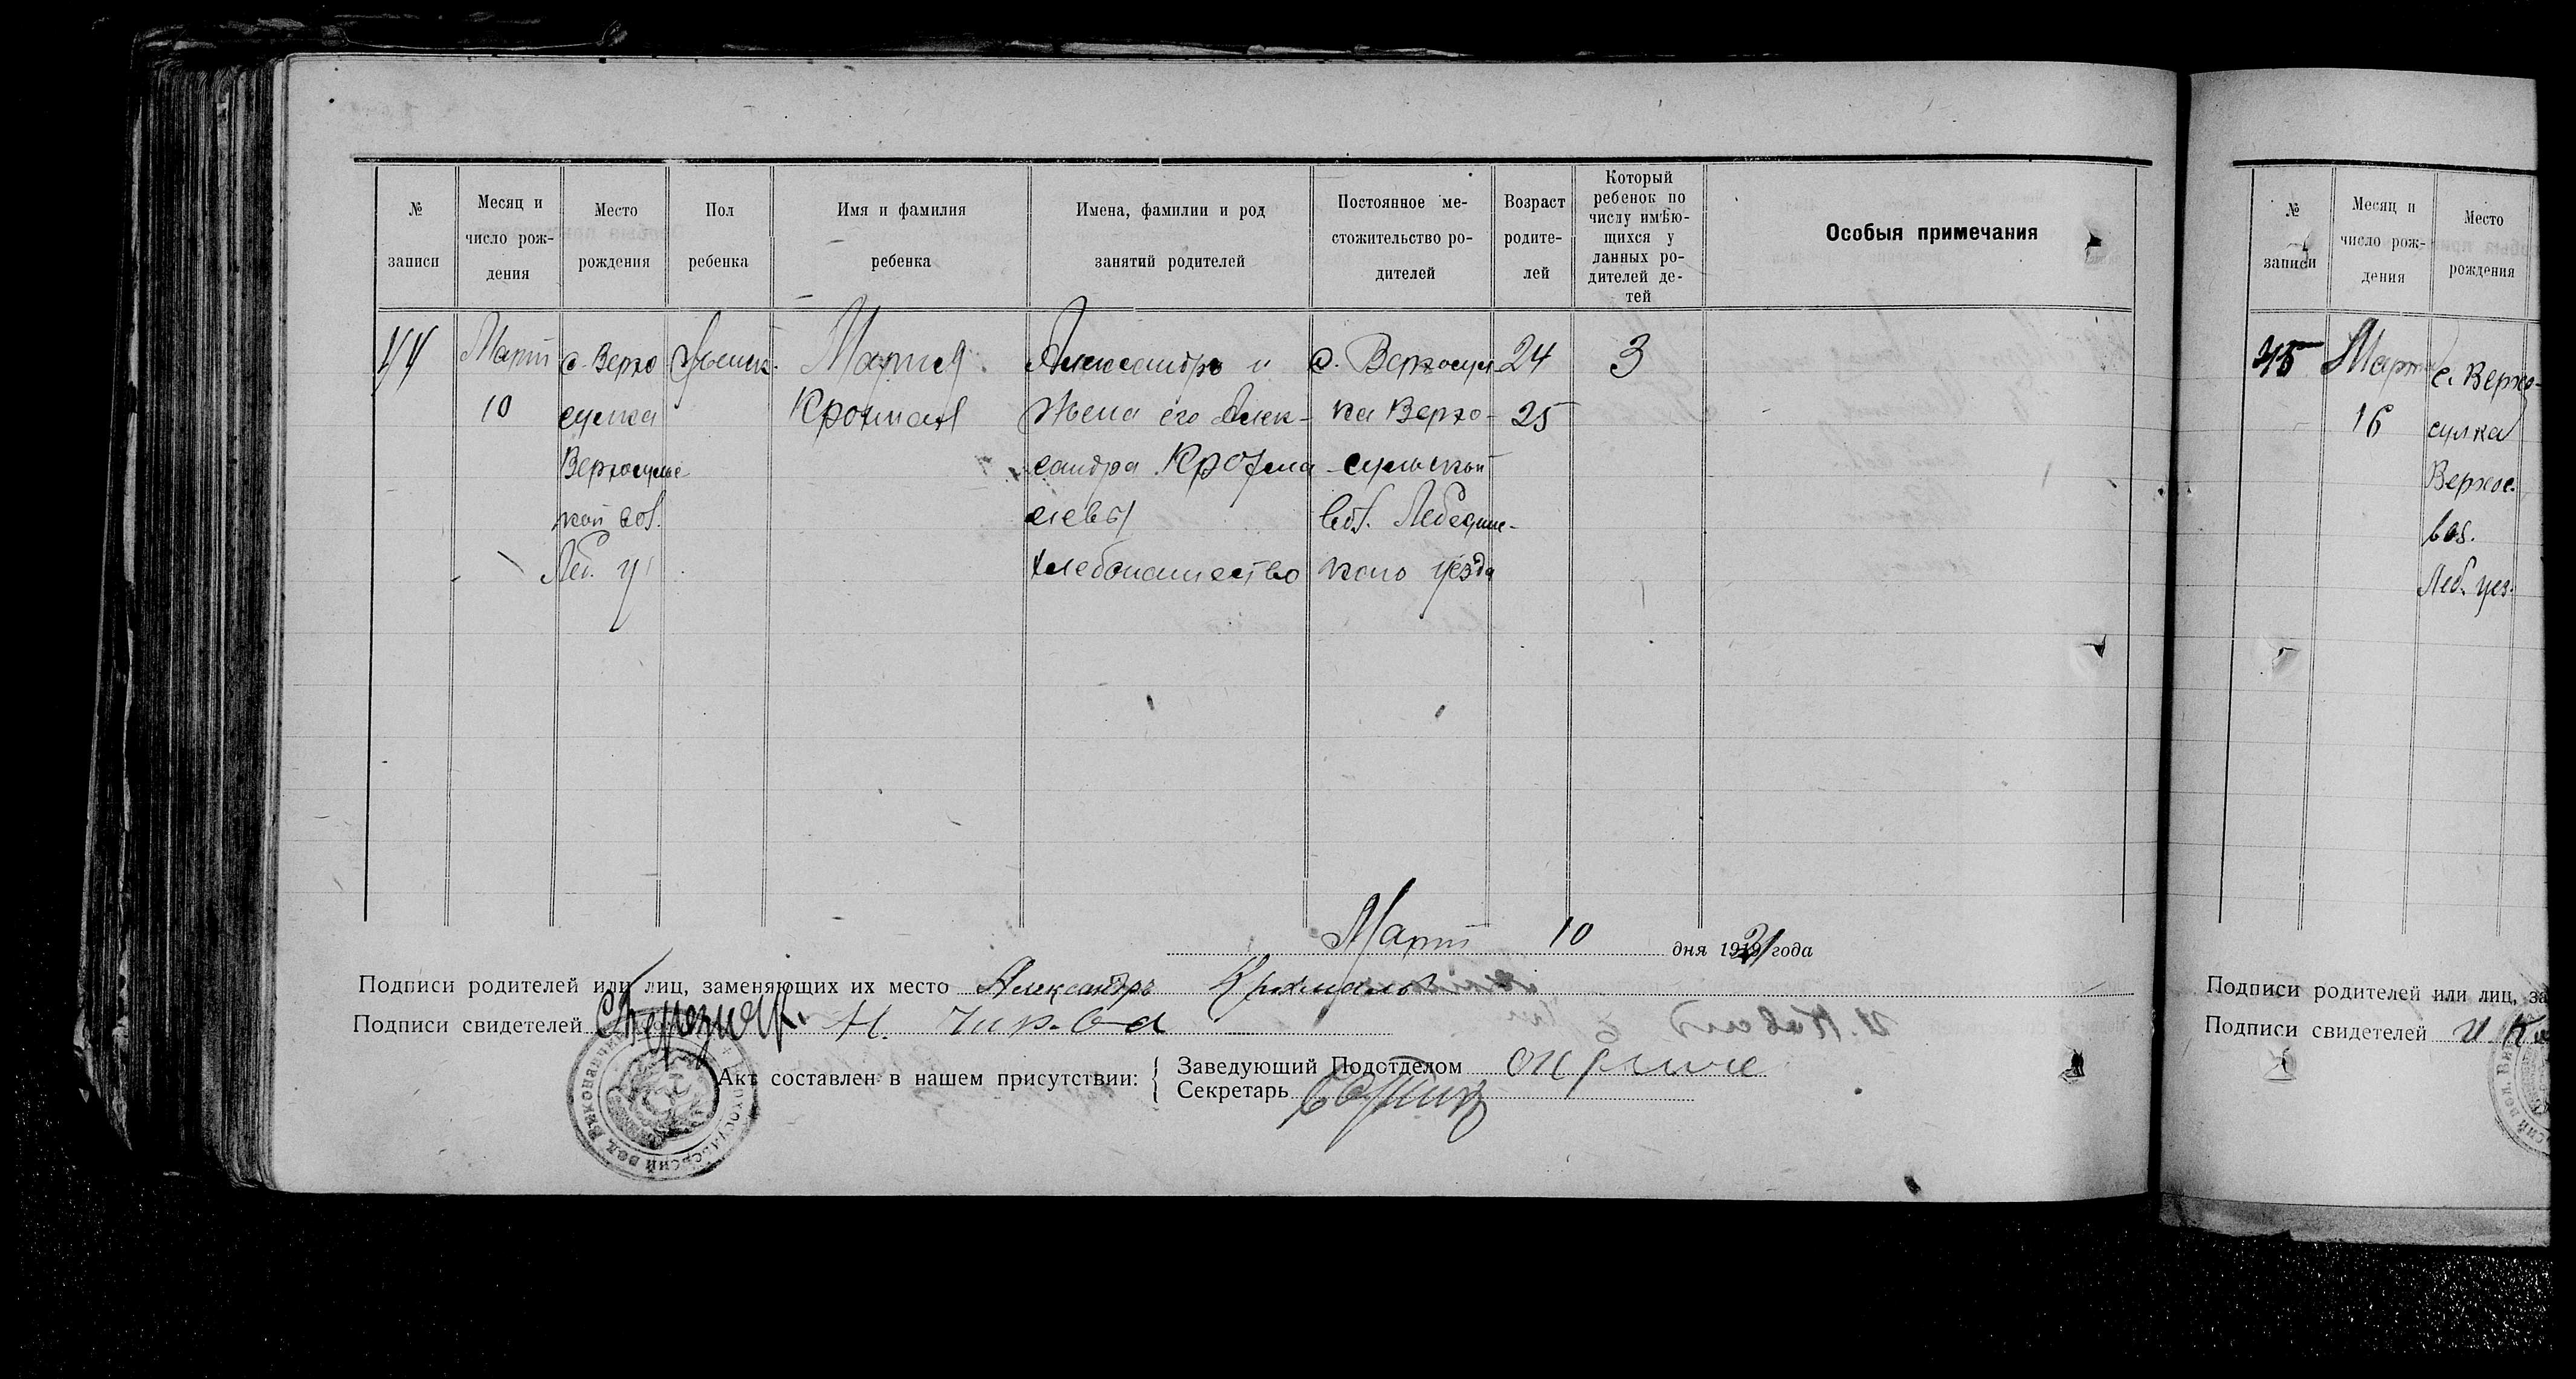 № записи
Месяц и число рождения
Место рождения
Пол ребенка
Имя и фамилия ребенка
Имена, фамилии и род занятий родителей
Постоянное местожительство родителей
Возраст родителей
Который ребенок по числу имѣющихся у данных родителей детей
Особыя примечания
44
Март
10
с. Верхо
сулка
Верхосульс
кой вол.
Леб. у
Женск.
Мария
Александр и
жена его Алек-
сандра
хлебопашество
с. Верхосул
ка Верхо-
сульской
вол. Лебединс-
кого уезда
24
25
3
Март 10 дня 1921 года
Подписи родителей или лиц, заменяющих их место Александръ
Подписи свидетелей
Акт составлен в нашем присутствии:
Заведующий Подотделом
Секретарь
№ записи
Месяц и число рождения
Место рождения
45
Март
16
с. Верхо-
сулка
Верхос.
вол.
Леб. уез.
Подписи родителей или лиц, за
Подписи свидетелей